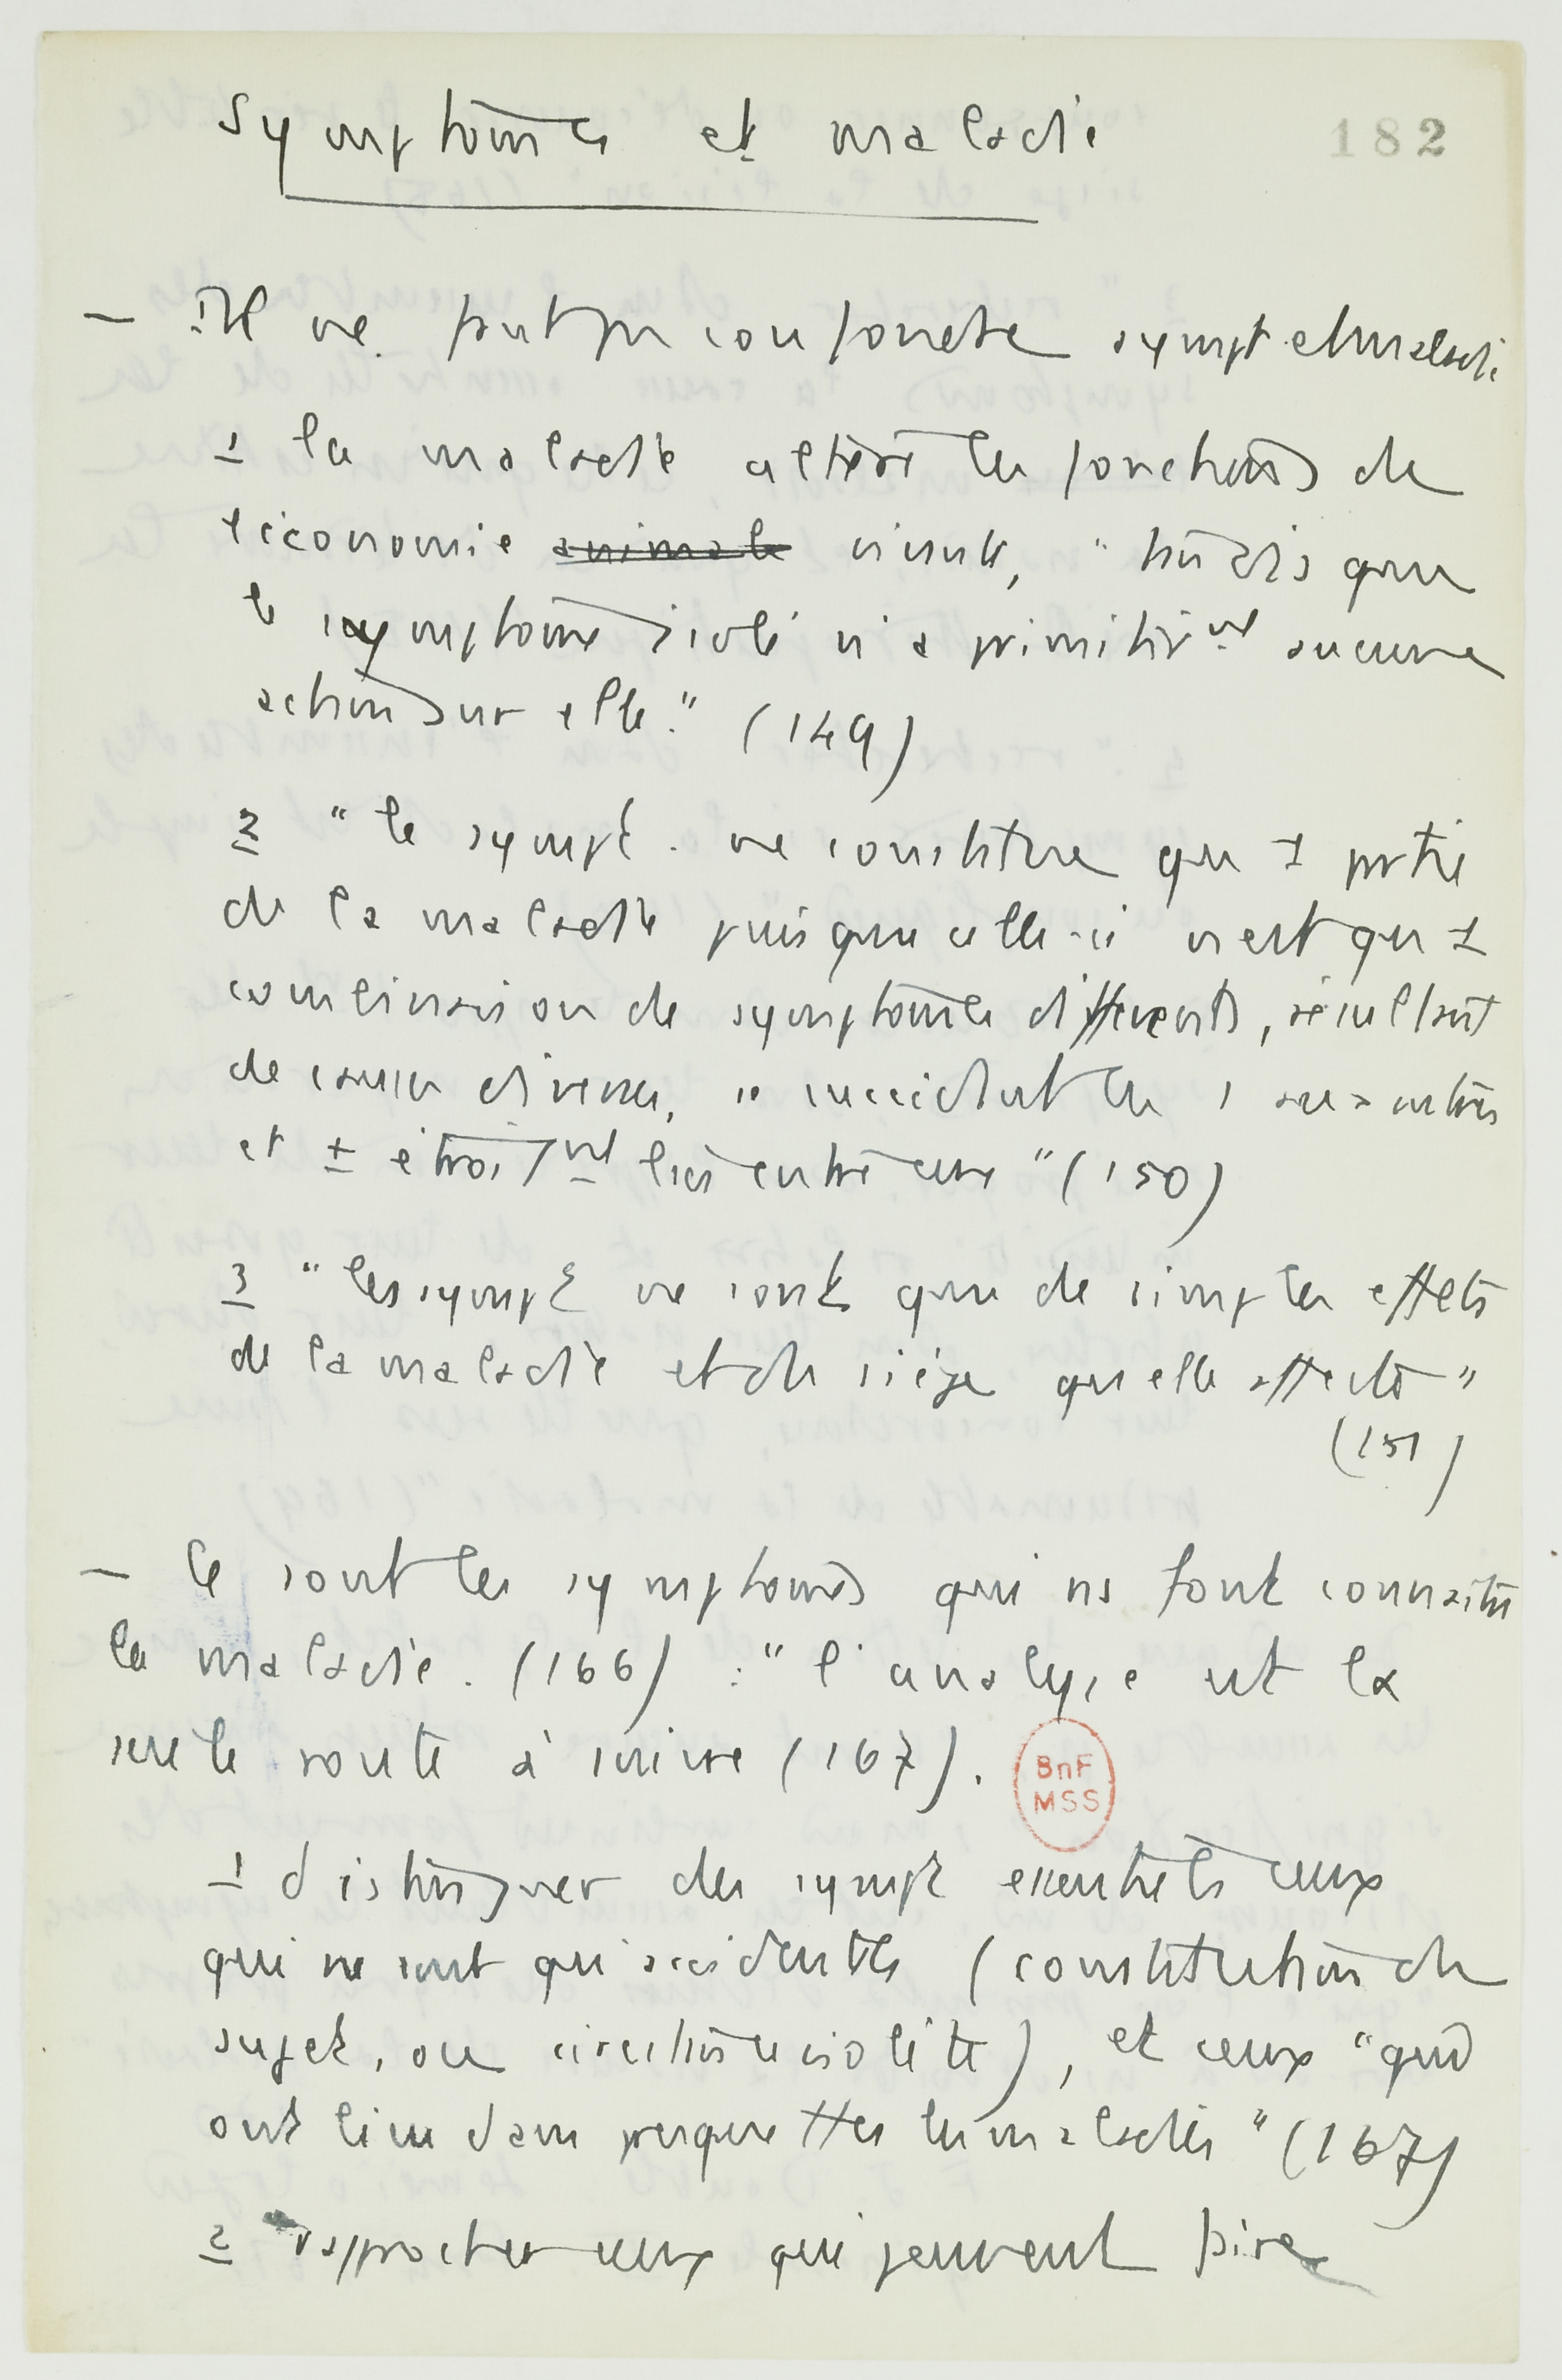 Symptômes et maladie
182
— Il ne faut pas confondre sympt et maladie
1 la maladie altère les fonctions de
l'économie animale vivante, "tandis que
le symptôme isolé n'a primitivmt aucune
action sur elle." (149)
2 "le sympt. ne constitue qu' 1 partie
de la maladie puisque celle-ci n'est qu' 1
combinaison de symptômes différents, résultant
de causes diverses, se succédant les 1 aux autres
et ± étroitmt liés entre eux" (150)
3 "les sympt ne sont que de simples effets
de la maladie et du siège qu'elle affecte"
(151)
— Ce sont les symptômes qui ns font connaître
la maladie. (166) : "l'analyse est la
seule route à suivre (167).
BnF
MSS
1 distinguer des sympt essentiels ceux
qui ne sont qu'accidentels (constitution du
sujet, ou), et ceux "qui
ont lieu dans presque ttes les maladies" (167)
2 rapprocher ceux qui peuvent faire